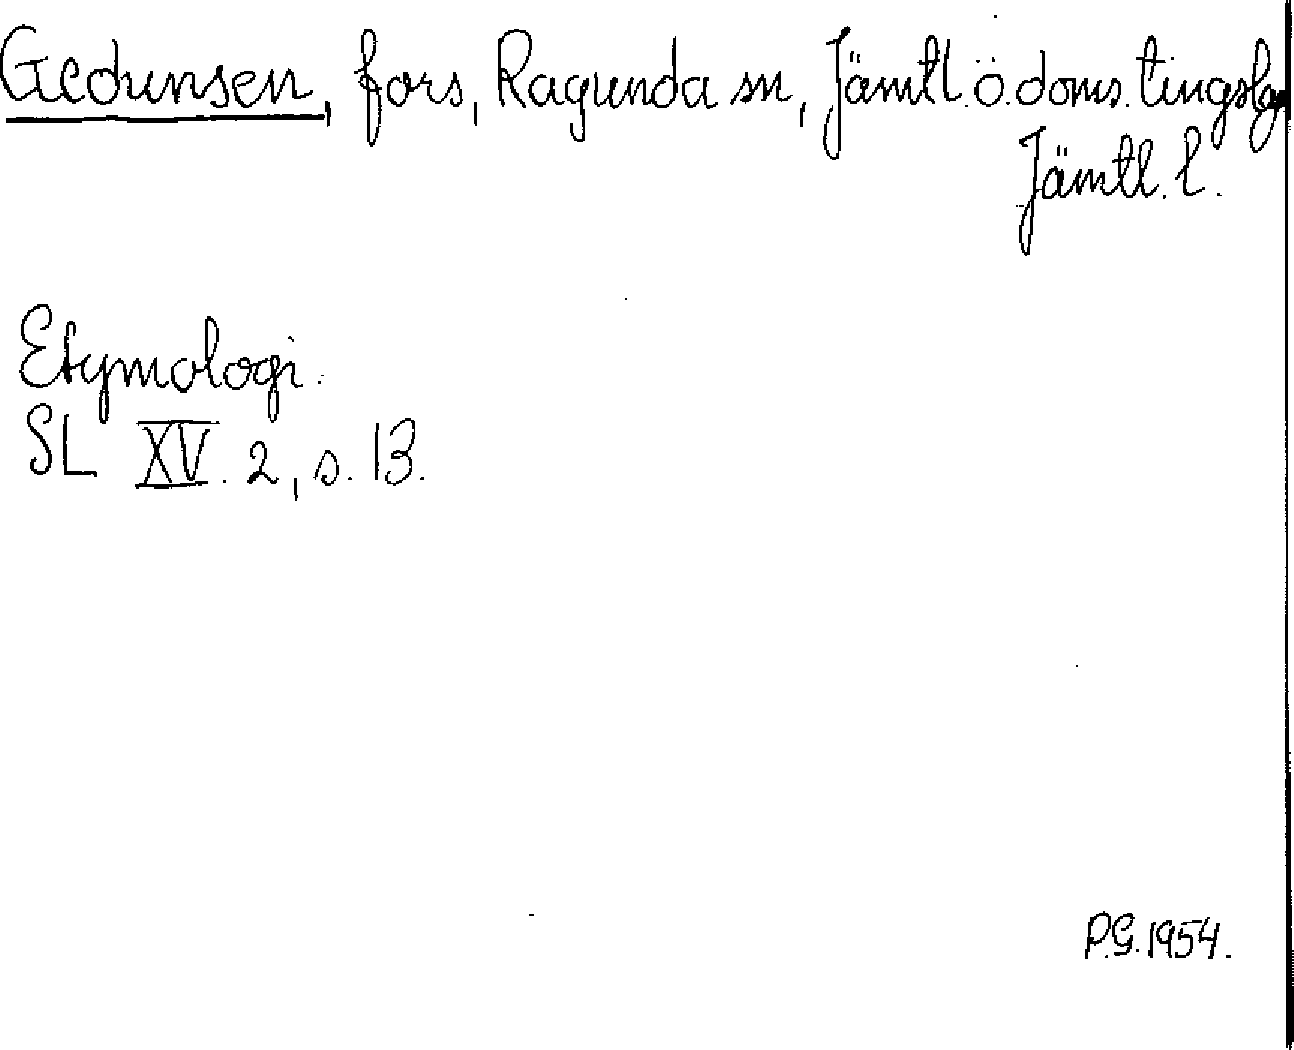 Gedunsen, fors, Ragunda sn, Jämtl. ö. doms. tingslag
Jämtl. l.
Etymologi.
SL XV. 2, s. 13.
P.G. 1954.